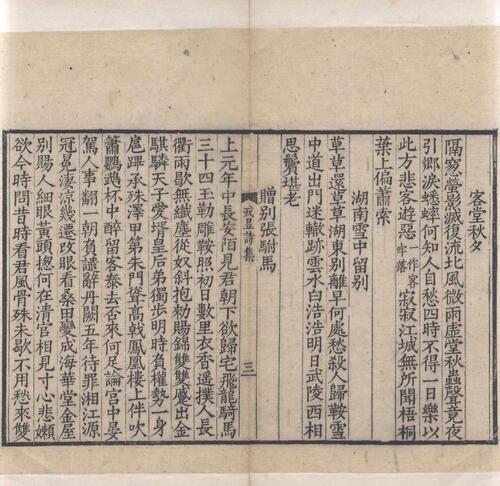 客堂秋夕
隔窻螢影滅復流北風微雨虛堂秋蟲聲竟夜
引鄉淚蟋蟀何知人自愁四時不得一日樂以
此方悲客遊惡一作客牢落寂寂江城無所聞梧桐
葉上偏蕭索
湖南雪中留別
草草還草草湖東別離早何處愁殺人歸鞍雪
中道出門迷轍跡雲水白浩浩明日武陵西相
思鬢堪老
贈別張駙馬
戎昱詩集
三
上元年中長安陌見君朝下欲歸宅飛龍騎馬
三十四玉勒雕鞍照初日數里衣香遥撲人長
衢雨歇無纖塵從奴斜抱勑賜錦雙雙蹙出金
騏驎天子愛壻皇后弟獨步明時負權勢一身
扈蹕承殊澤甲第朱門聳高戟鳳凰樓上伴吹
簫鸚鵡杯中醉留客泰去否來何足論宮中晏
駕人事翻一朝負譴辭丹闕五年待罪湘江源
冠冕淒涼幾遷改眼看桑田變成海華堂金屋
別賜人細眼黃頭揔何在清宮相見寸心悲嬾
欲今時問昔時看君風骨殊未歇不用愁來雙